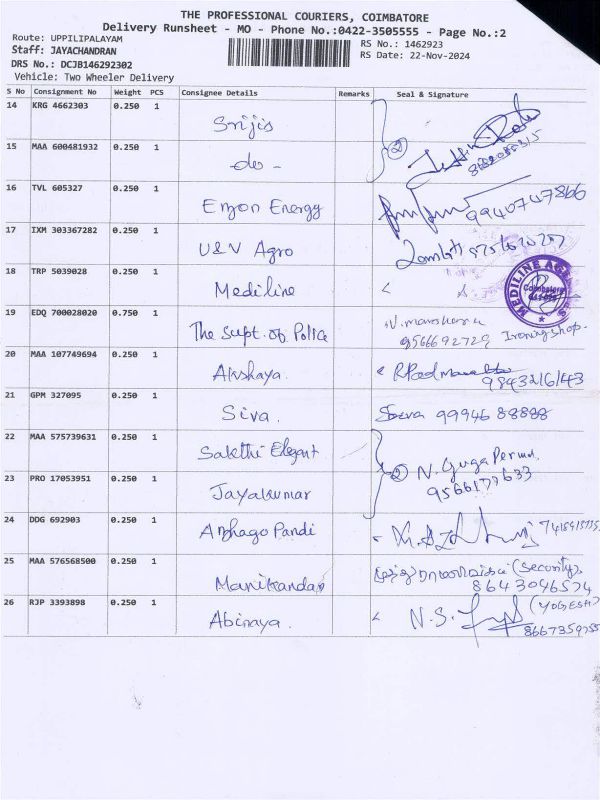 THE PROFESSIONAL COURIERS, COIMBATORE
Delivery Runsheet - MO - Phone No.:0422-3505555 - Page No.:2
Route: UPPILIPALAYAM
RS No.: 1462923
Staff: JAYACHANDRAN
RS Date: 22-Nov-2024
DRS No.: DCJB146292302
Vehicle: Two Wheeler Delivery
S No Consignment No Weight PCS Consignee Details Remarks Seal & Signature
14 KRG 4662303 0.250 1 Srijis
15 MAA 600481932 0.250 1 -do- 2
16 TVL 605327 0.250 1 Enzon Energy 9940747866
17 IXM 303367282 0.250 1 U&V Agro
18 TRP 5039028 0.250 1 Mediline MEDILINE AGENCIES Coimbatore
19 EDQ 700028020 0.750 1 The Supt. of Police 9566692729 Ironing shop.
20 MAA 107749694 0.250 1 Akshaya. 9843216143
21 GPM 327095 0.250 1 Siva. Siva 99946 88888
22 MAA 575739631 0.250 1 Sakthi Elegant
23 PRO 17053951 0.250 1 Jayakumar 2 N. Guga 9566177633
24 DDG 692903 0.250 1 Azhago Pandi
25 MAA 576568500 0.250 1 Manikandan (Security). 8643046574
26 RJP 3393898 0.250 1 Abinaya. N.S. (YOGESH)